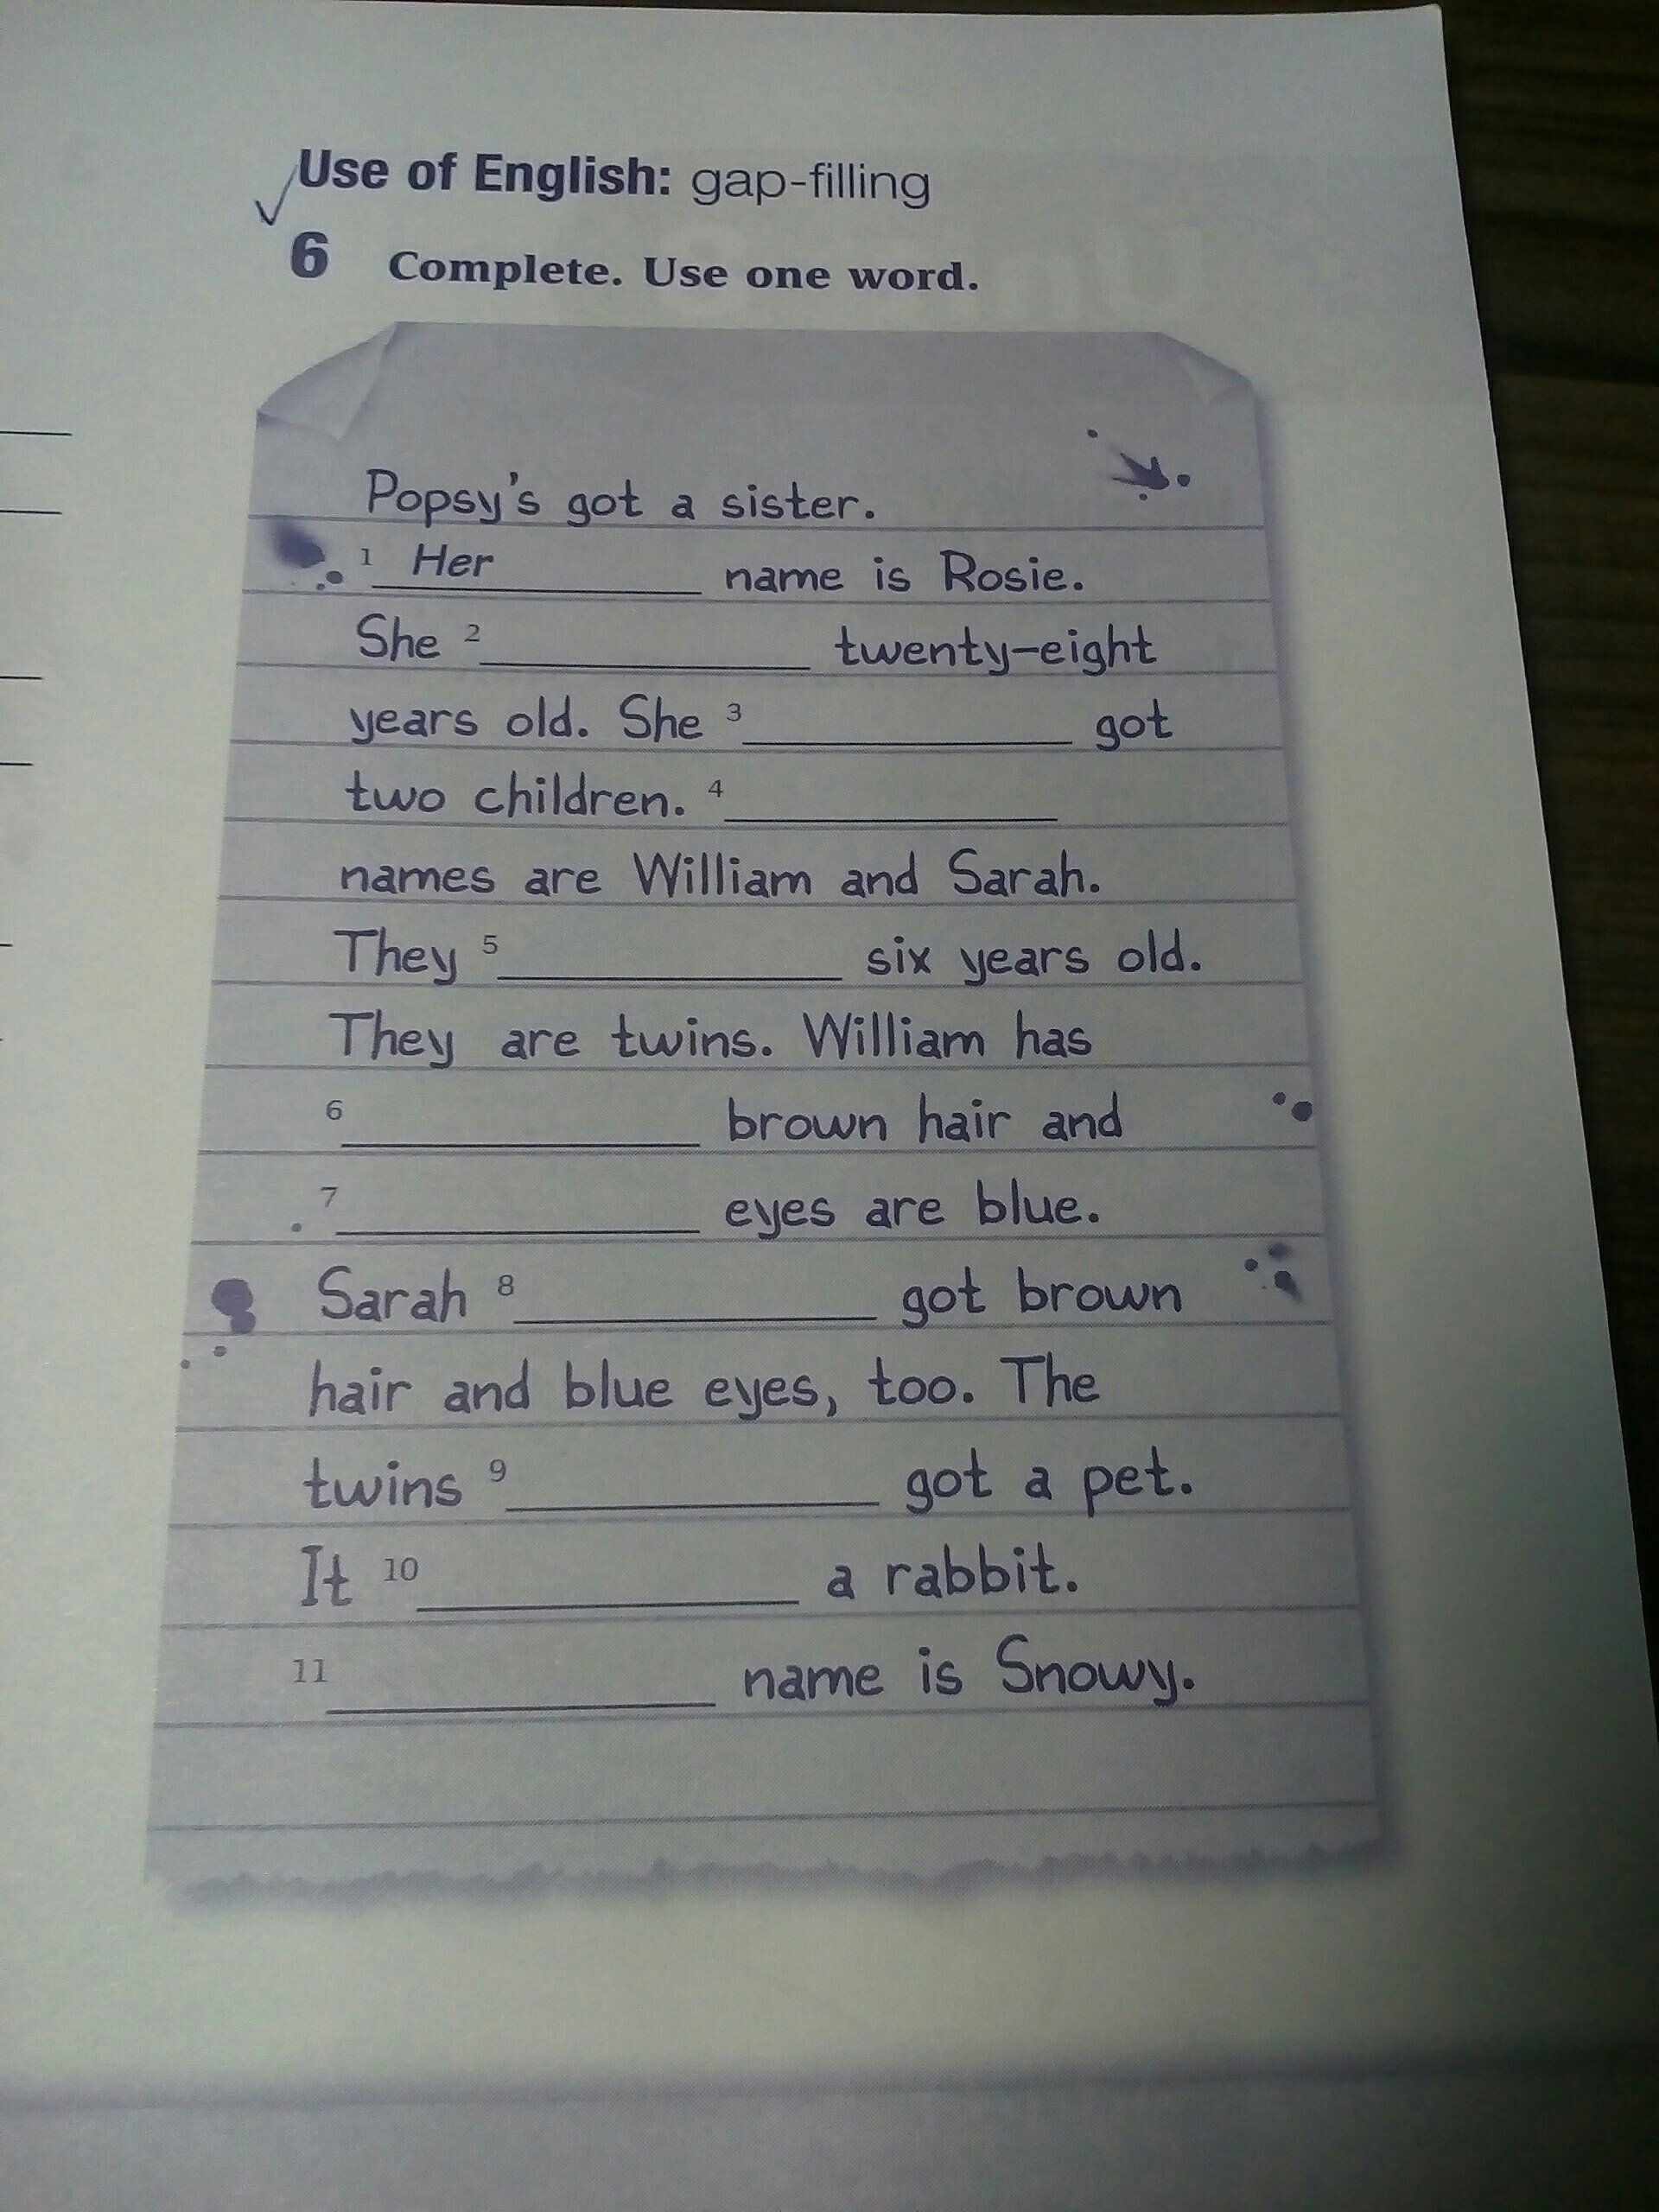 Use of English: gap-filling
6 Complete. Use one word.
Popsy's got a sister.
1 Her name is Rosie.
She 2 twenty-eight
years old. She 3 got
two children. 4
names are William and Sarah.
They 5 six years old.
They are twins. William has
6 brown hair and
7 eyes are blue.
Sarah 8 got brown
hair and blue eyes, too. The
twins 9 got a pet.
It 10 a rabbit.
11 name is Snowy.